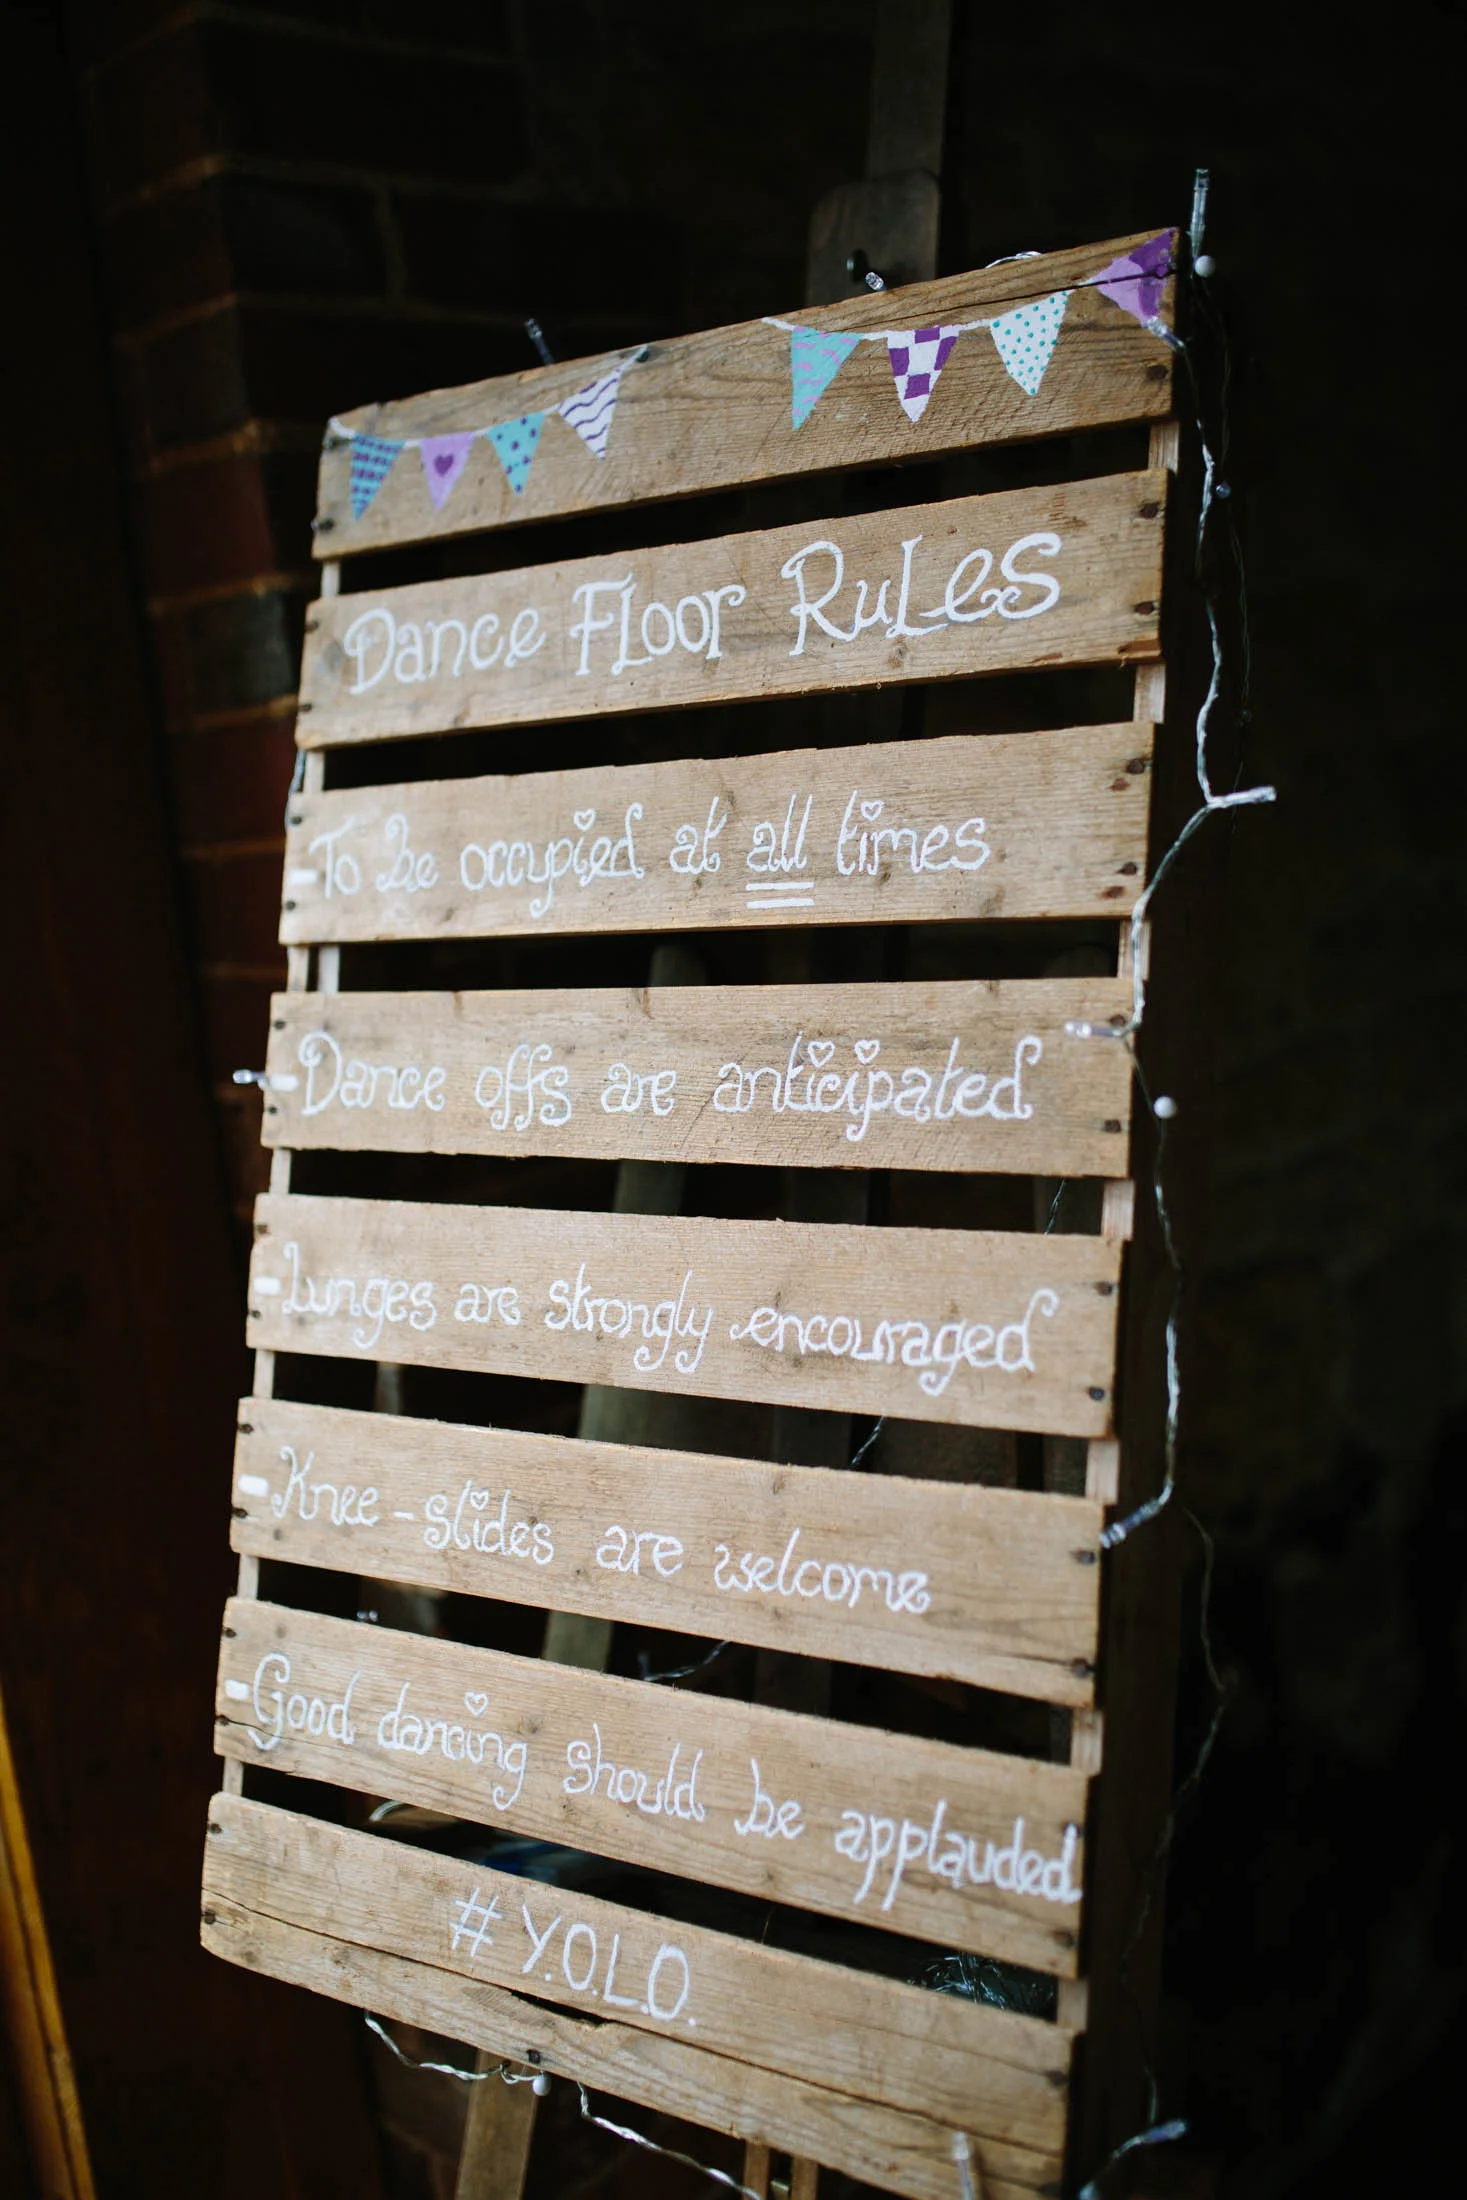 Dance Floor Rules
- To be occupied at all times
- Dance offs are anticipated
- Lunges are strongly encouraged
- Knee-slides are welcome
- Good dancing should be applauded
# Y.O.L.O.